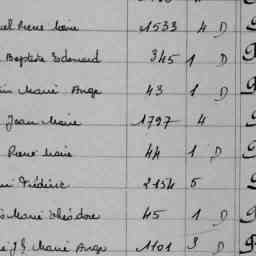 Pierre Marie 1533 4 D
Baptiste Edouard 345 1 D
Marie Ange 43 1 D
Jean Marie 1797 4
Pierre Marie 44 1 D
Frédéric 2154 5
Marie Théodore 45 1 D
Marie Ange 1101 3 D